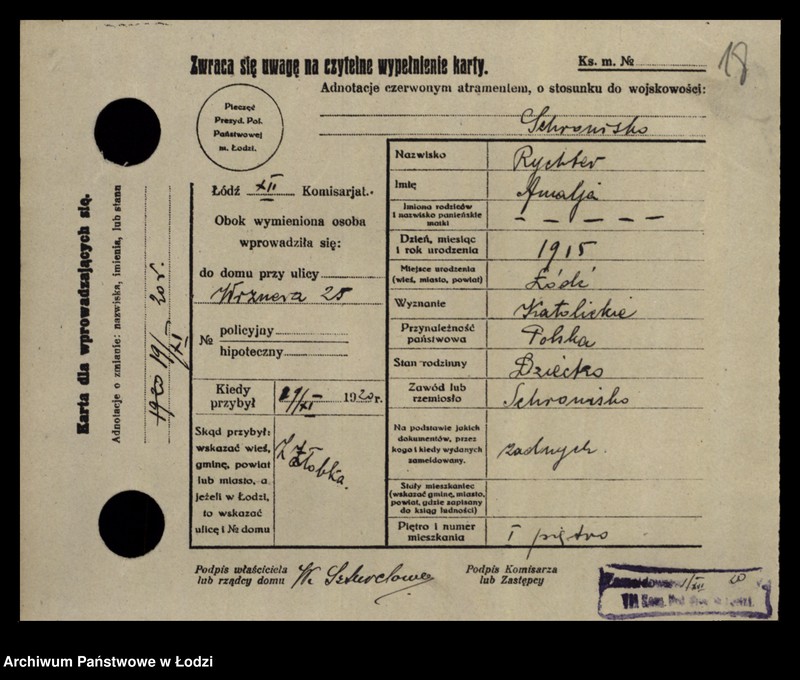 Zwraca się uwagę na czytelne wypełnienie karty.
Ks. m. №
18
Adnotacje czerwonym atramentem, o stosunku do wojskowości:
Schronisko
Pieczęć
Prezyd. Pol.
Państwowej
m. Łodzi.
Karta dla wprowadzających się.
Adnotacje o zmianie: nazwiska, imienia, lub stanu
1920 19/XI 20 r.
Łódź XII Komisarjat.
Obok wymieniona osoba
wprowadziła się:
do domu przy ulicy
25
№ policyjny
hipoteczny
Kiedy przybył
21/XI 1920 r.
Skąd przybył:
wskazać wieś,
gminę, powiat
lub miasto, a
jeżeli w Łodzi,
to wskazać
ulicę i № domu
Z Żłobka.
Nazwisko Rychter
Imię Amalja
Imiona rodziców
i nazwisko panieńskie
matki – – – – –
Dzień, miesiąc
i rok urodzenia 1915
Miejsce urodzenia
(wieś, miasto, powiat) Łódź
Wyznanie Katolickie
Przynależność
państwowa Polska
Stan rodzinny Dziecko
Zawód lub
rzemiosło Schronisko
Na podstawie jakich
dokumentów, przez
kogo i kiedy wydanych
zameldowany. żadnych.
Stały mieszkaniec
(wskazać gminę, miasto,
powiat, gdzie zapisany
do ksiąg ludności)
Piętro i numer
mieszkania I piętro
Podpis właściciela
lub rządcy domu
Podpis Komisarza
lub Zastępcy
Zameldowano /XII 20
Archiwum Państwowe w Łodzi